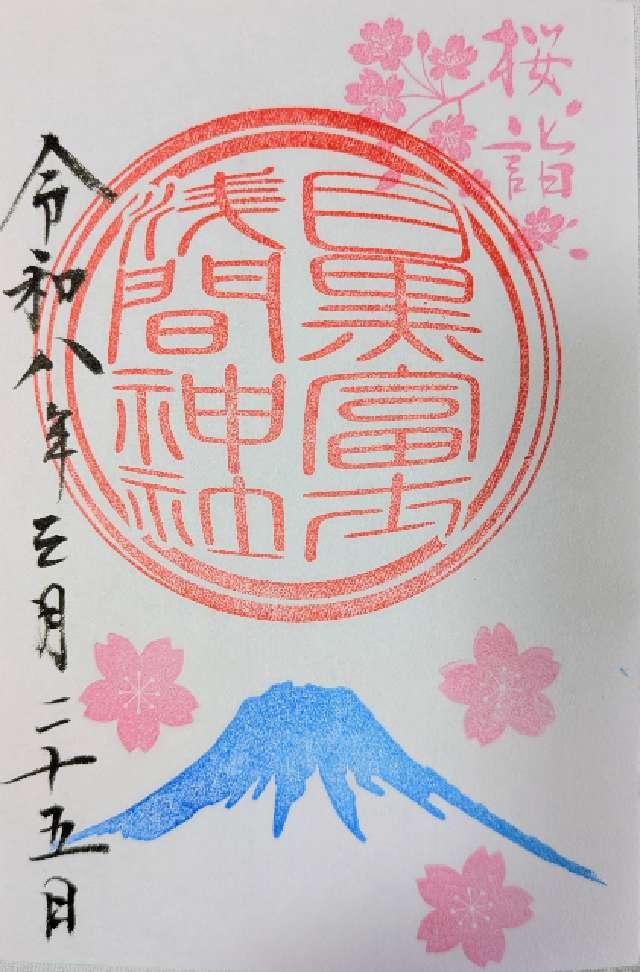 桜詣
目黒富士
浅間神社
令和八年三月二十五日